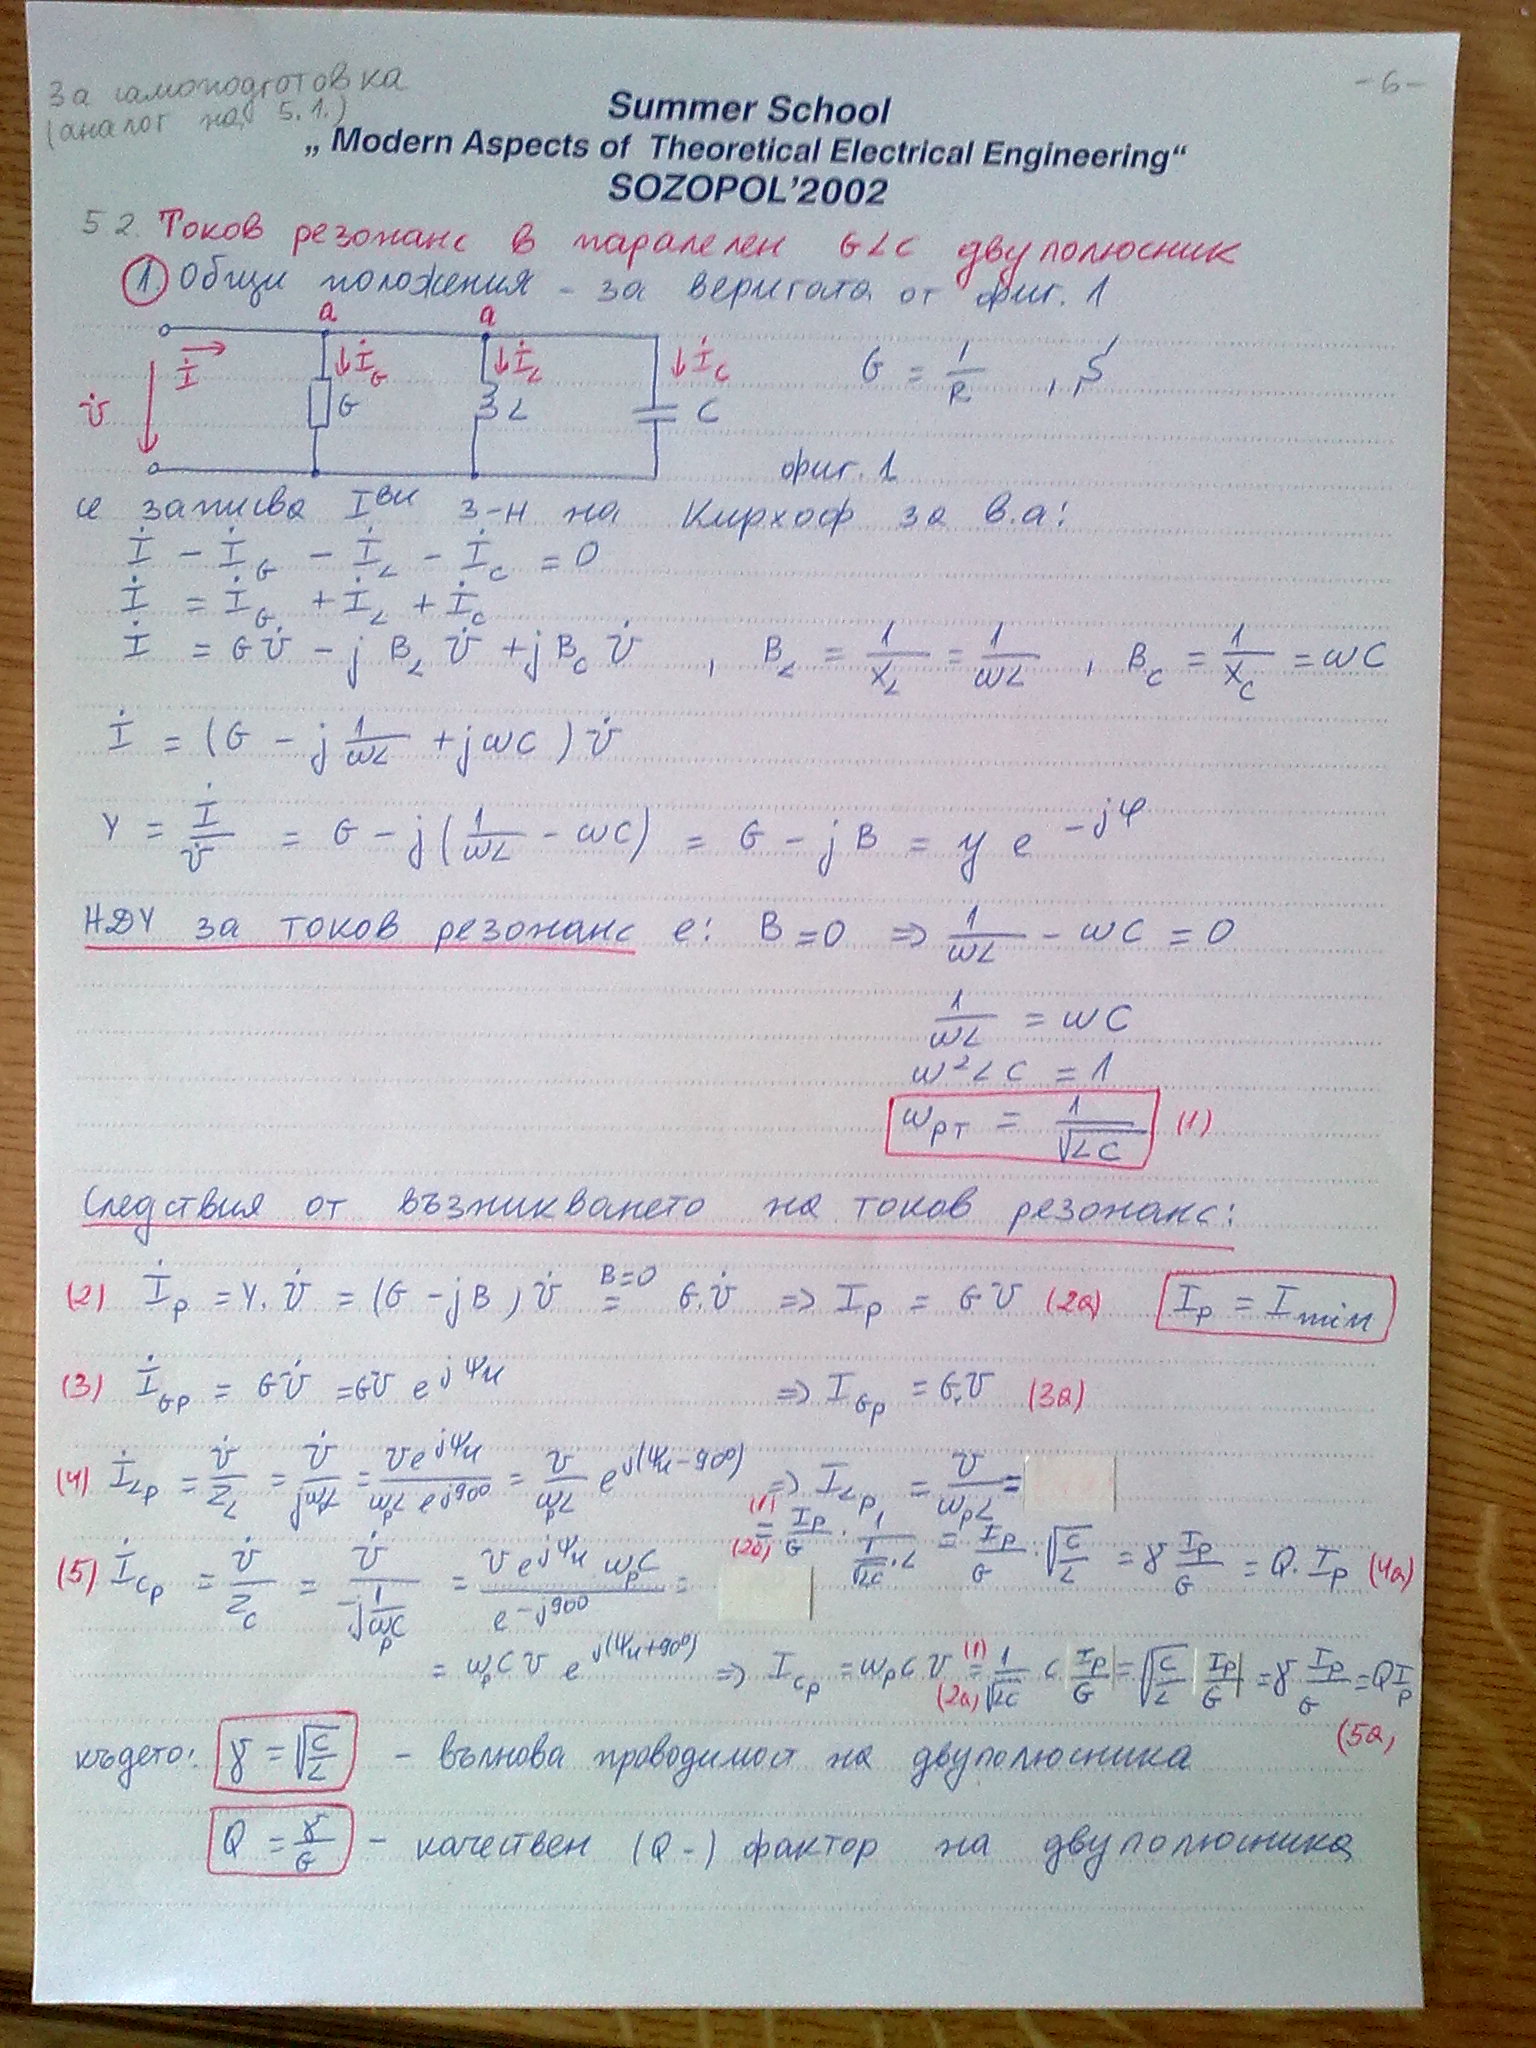 За самоподготовка
(аналог на 5.1.)
-6-
Summer School
„ Modern Aspects of Theoretical Electrical Engineering“
SOZOPOL’2002
5 2. Токов резонанс в паралелен GLC двуполюсник
1. Общи положения - за веригата от фиг. 1
a a
İ İ_G İ_L İ_C G = 1/R , S
U̇ G L C
фиг. 1
се записва I^ви з-н на Кирхоф за в.а:
İ - İ_G - İ_L - İ_C = 0
İ = İ_G + İ_L + İ_C
İ = GU̇ - j B_L U̇ + j B_C U̇ , B_L = 1/X_L = 1/ωL , B_C = 1/X_C = ωC
İ = (G - j 1/ωL + jωC) U̇
Y = İ/U̇ = G - j(1/ωL - ωC) = G - jB = y e^-jφ
НДУ за токов резонанс е: B = 0 => 1/ωL - ωC = 0
1/ωL = ωC
ω²LC = 1
ω_рт = 1/√LC (1)
Следствия от възникването на токов резонанс:
(2) İ_p = Y. U̇ = (G - jB) U̇ =^(B=0) G.U̇ => I_p = GU (2a) I_p = I_min
(3) İ_Gp = GU̇ = GU e^jψu => I_Gp = G.U (3a)
(4) İ_Lp = U̇/Z_L = U̇/jω_pL = U e^jψu / ω_pL e^j90° = U/ω_pL e^j(ψu-90°) => I_Lp = U/ω_pL =
(1) (2a) = I_p/G . 1/(1/√LC . L) = I_p/G . √C/L = γ I_p/G = Q. I_p (4a)
(5) İ_Cp = U̇/Z_C = U̇/(-j 1/ω_pC) = U e^jψu ω_pC / e^-j90° =
= ω_pC U e^j(ψu+90°) => I_Cp = ω_pC U =^(1)(2a) 1/√LC C I_p/G = √C/L I_p/G = γ I_p/G = QI_p
(5a)
където: γ = √C/L - вълнова проводимост на двуполюсника
Q = γ/G - качествен (Q-) фактор на двуполюсника